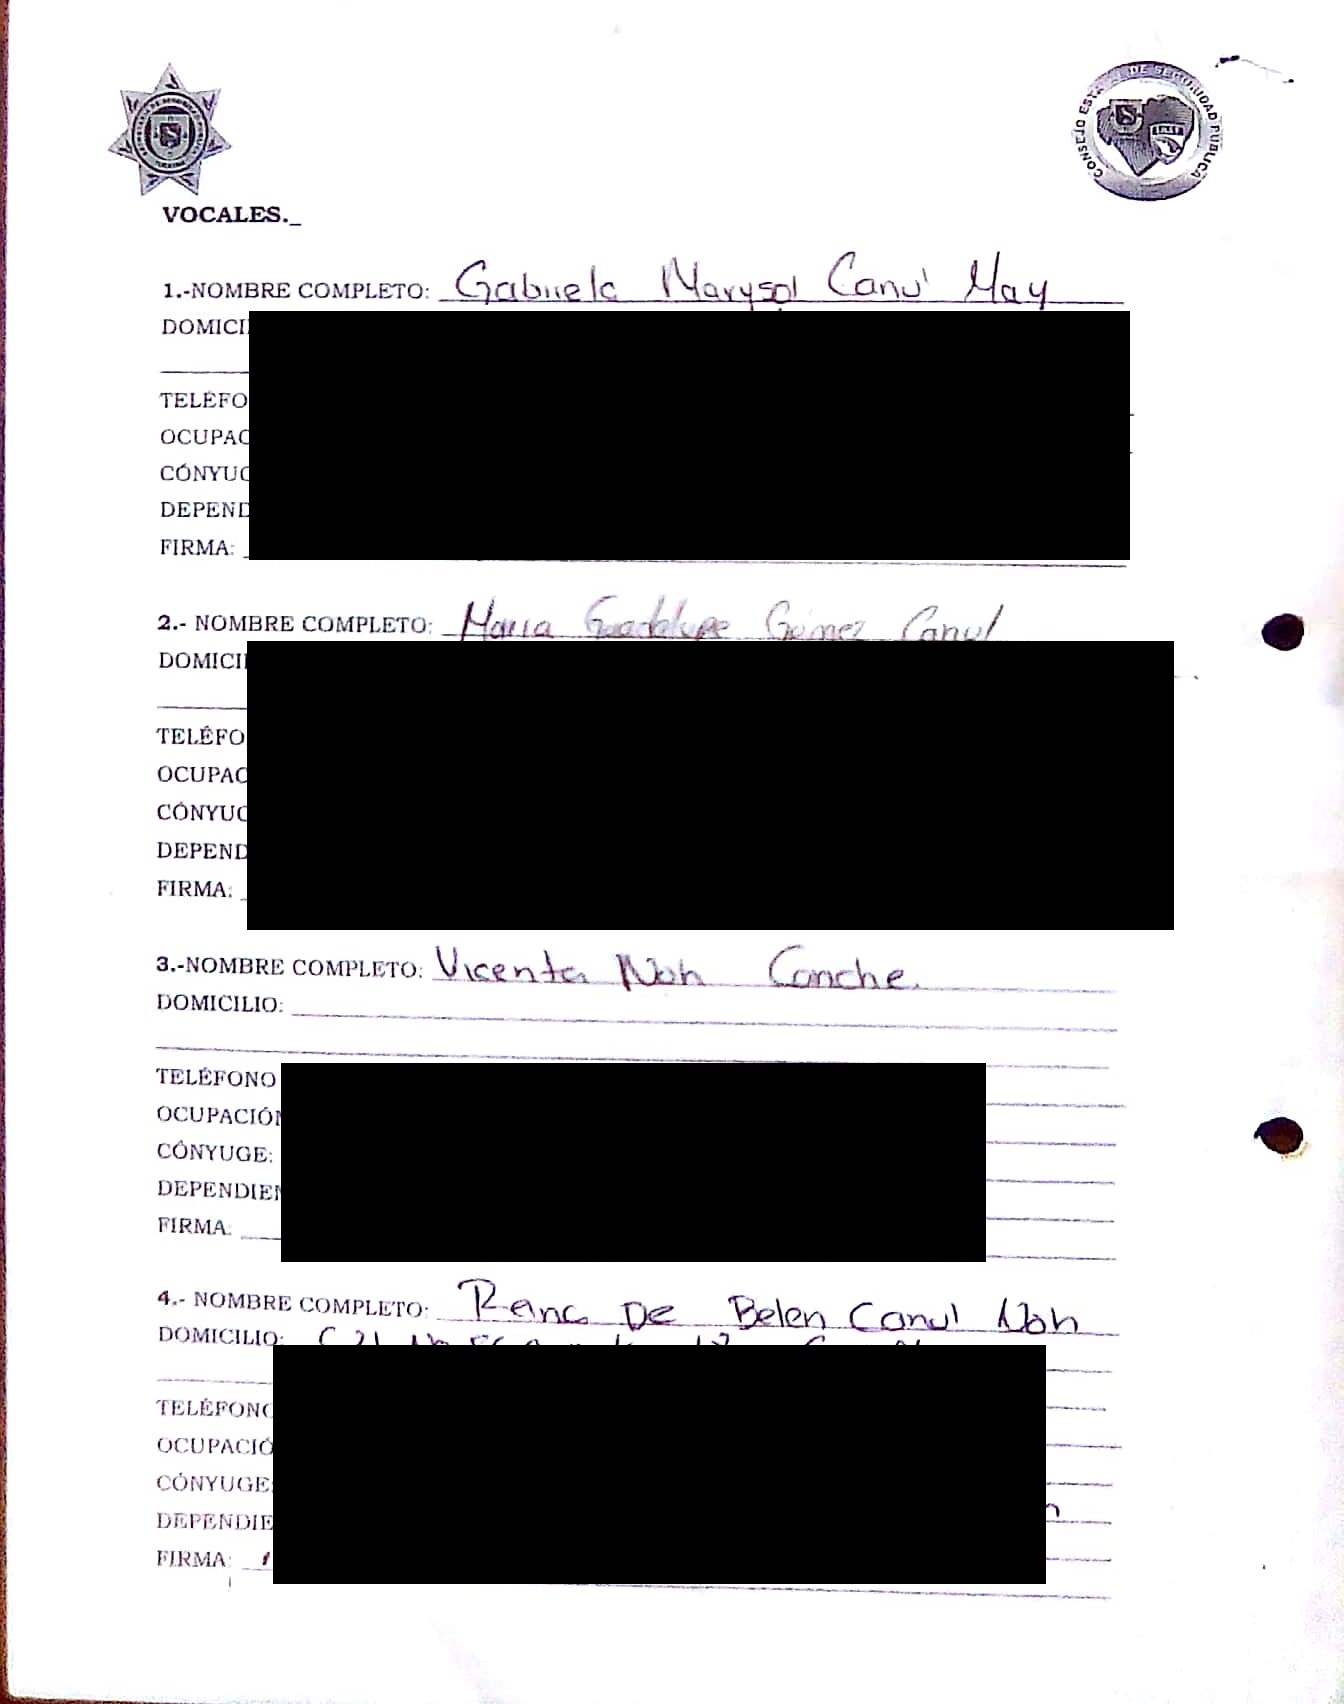 CONSEJO ESTATAL DE SEGURIDAD PUBLICA
VOCALES._
1.-NOMBRE COMPLETO: Gabriela Marysol Canu' May
DOMICI
TELÉFO
OCUPAC
CÓNYUG
DEPEND
FIRMA:
2.- NOMBRE COMPLETO: Maria Guadalupe Gómez Canul
DOMICI
TELÉFO
OCUPAC
CÓNYUG
DEPEND
FIRMA:
3.-NOMBRE COMPLETO: Vicenta Noh Canche.
DOMICILIO:
TELÉFONO
OCUPACIÓN
CÓNYUGE:
DEPENDIEN
FIRMA:
4.- NOMBRE COMPLETO: Rena De Belen Canul Noh
DOMICILIO:
TELÉFONO
OCUPACIÓ
CÓNYUGE:
DEPENDIE
FIRMA: